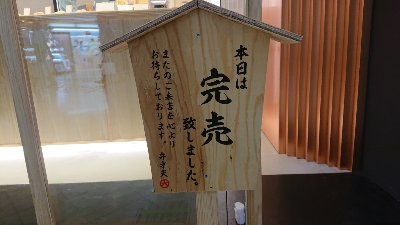 本日は
完売
致しました。
またのご来店を心より
お待ちしております。
弁才天